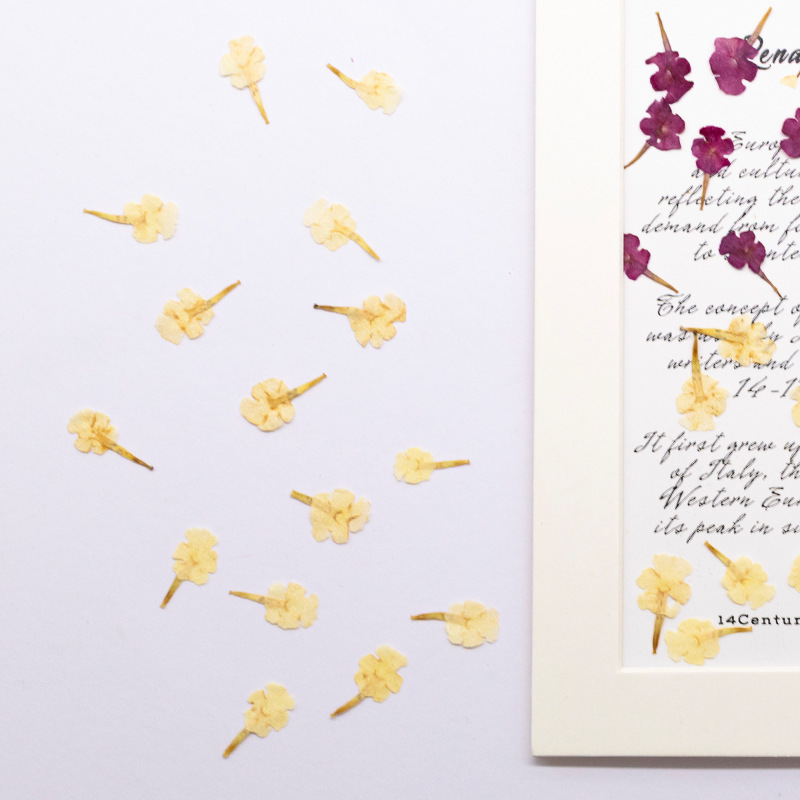 Rena
Europ
and cultu
reflecting the
demand from fo
to
The concept o
was
writers and
14-1
It first grew up
of Italy, th
Western Eur
its peak in su
14Centur